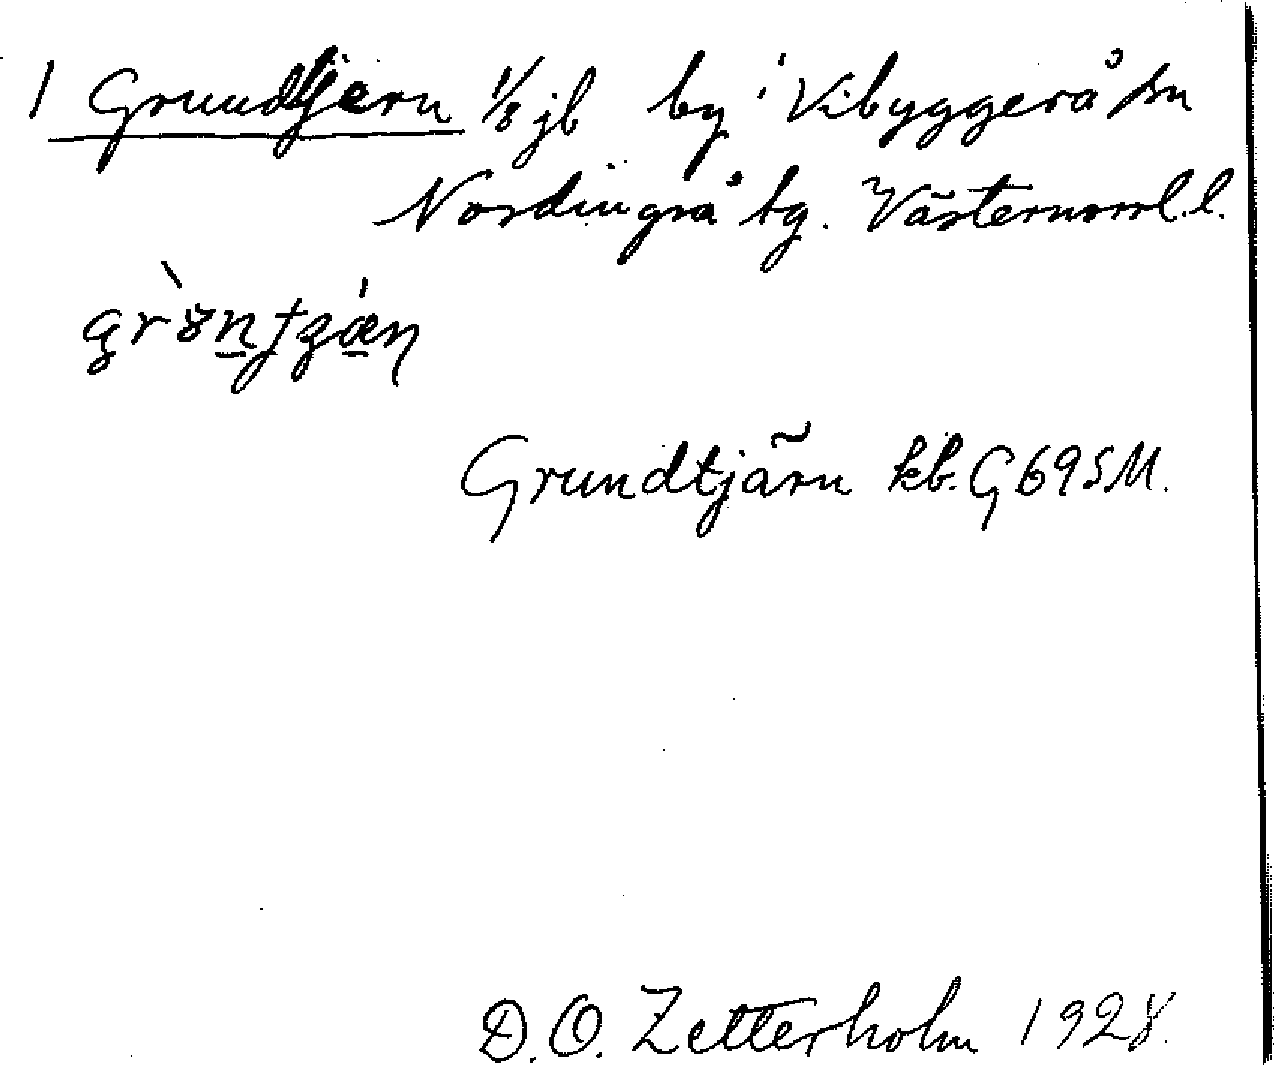 1 Grundtjern 1/8 jb by i Vibyggerå sn
Nordingrå tg. Västernorrl. l.
Grundtjärn kb. G69SM.
D. O. Zetterholm 1928.